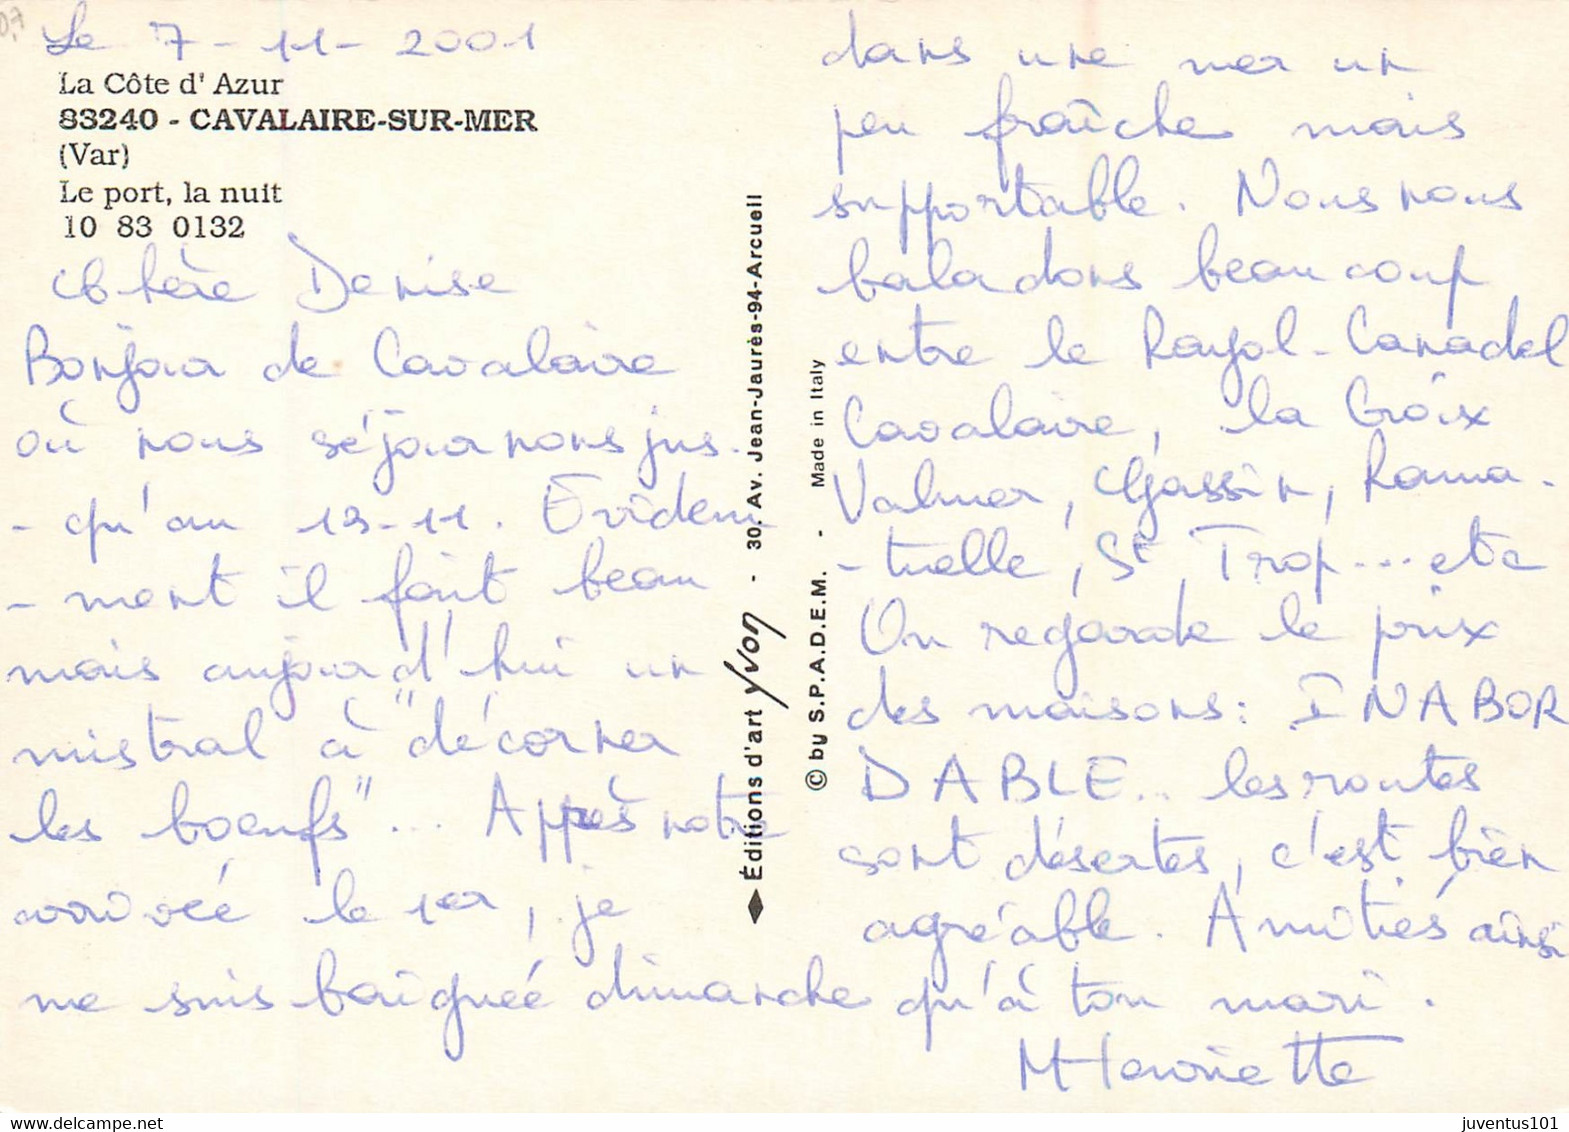 07
Le 7-11-2001
La Côte d' Azur
83240 - CAVALAIRE-SUR-MER
(Var)
Le port, la nuit
10 83 0132
Chère Denise
Bonjour de Cavalaire
où nous séjournons jus-
-qu'au 13-11. Evidem-
-ment il fait beau
mais aujourd'hui un
mistral à "décorner
les boeufs"... Apprès notre
arrivée le 1er, je
me suis baignée dimanche
dans une mer un
peu fraîche mais
supportable. Nous nous
baladons beaucoup
entre le Rayol-Canadel
Cavalaire, la Croix
Valmer, Gassin, Rama-
-tuelle, St Trop... etc
On regarde le prix
des maisons: INABOR
DABLE... les routes
sont désertes, c'est bien
agréable. Amitiés ainsi
qu'à ton mari.
M Henriette
◆ Éditions d'art Yvon - 30. Av. Jean-Jaurès-94-Arcueil
© by S.P.A.D.E.M. - Made in Italy
juventus101